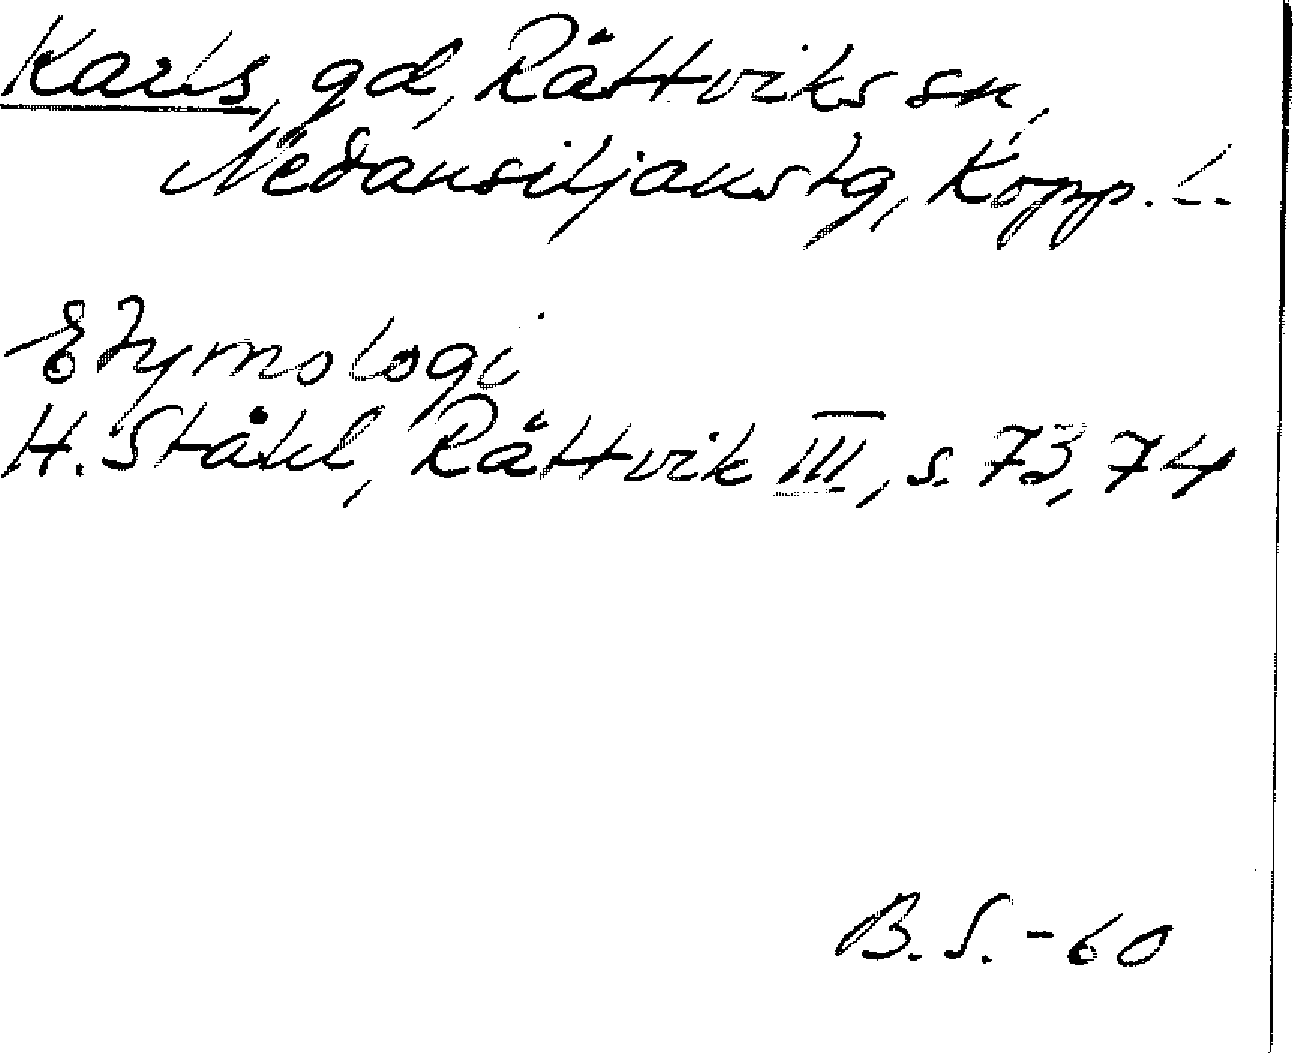 Karls, gd, Rättviks sn,
Nedansiljans tg, Kopp. l.
Etymologi
H. Ståhl, Rättvik III, s. 73, 74
B. S. - 60